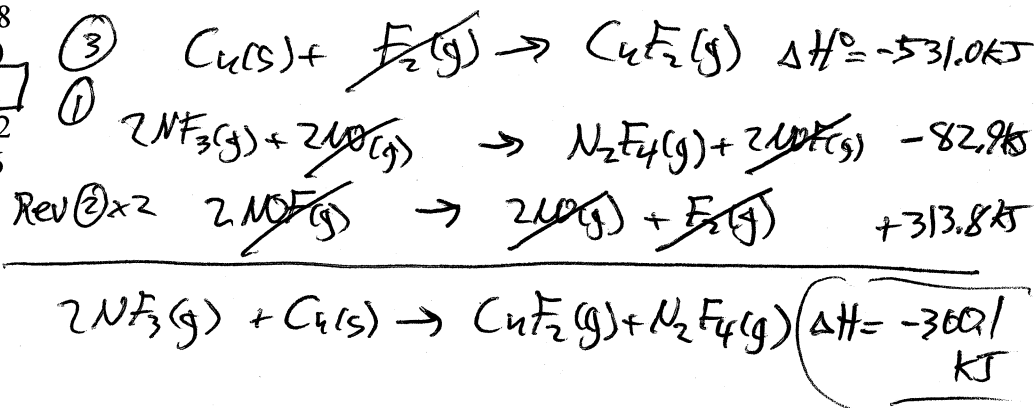 8
③ Cu(s) + F₂(g) → CuF₂(g) ΔH° = -531.0 kJ
① 2NF₃(g) + 2NO(g) → N₂F₄(g) + 2NOF(g) -82.9 kJ
2
5
Rev ② x 2 2NOF(g) → 2NO(g) + F₂(g) +313.8 kJ
2NF₃(g) + Cu(s) → CuF₂(g) + N₂F₄(g) ΔH = -300.1
kJ